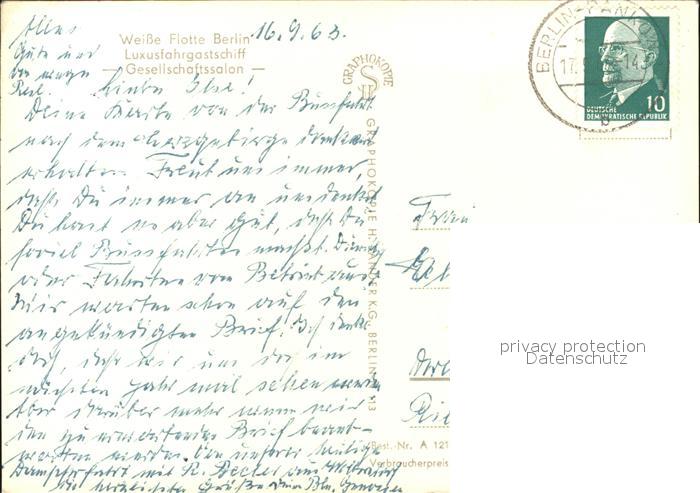 Alles
Gute und
Weiße Flotte Berlin
Luxusfahrgastschiff
— Gesellschaftssalon —
16.9.63.
Liebe Ilse!
Deine Karte von der Busfahrt
nach dem Erzgebirge dankend
erhalten. Freut uns immer,
daß Du immer an uns denkst.
Du hast es aber gut, daß Du
soviel Busfahrten machst.
oder Fahrten vom Betrieb aus.
Wir warten schon auf den
angekündigten Brief. Ich denke
doch, daß wir uns doch im
nächsten Jahr mal sehen werden
Aber darüber mehr wenn wir
den zu erwartenden Brief beant-
worten werden. Von unserer heutigen
Dampferfahrt mit
die herzlichsten Grüße
GRAPHOKOPIE
GRAPHOKOPIE H. SANDER K.G. BERLIN
Best.-Nr. A 121
Verbraucherpreis
Frau
BERLIN-PANKOW
17.
b
DEUTSCHE
DEMOKRATISCHE REPUBLIK
10
privacy protection
Datenschutz